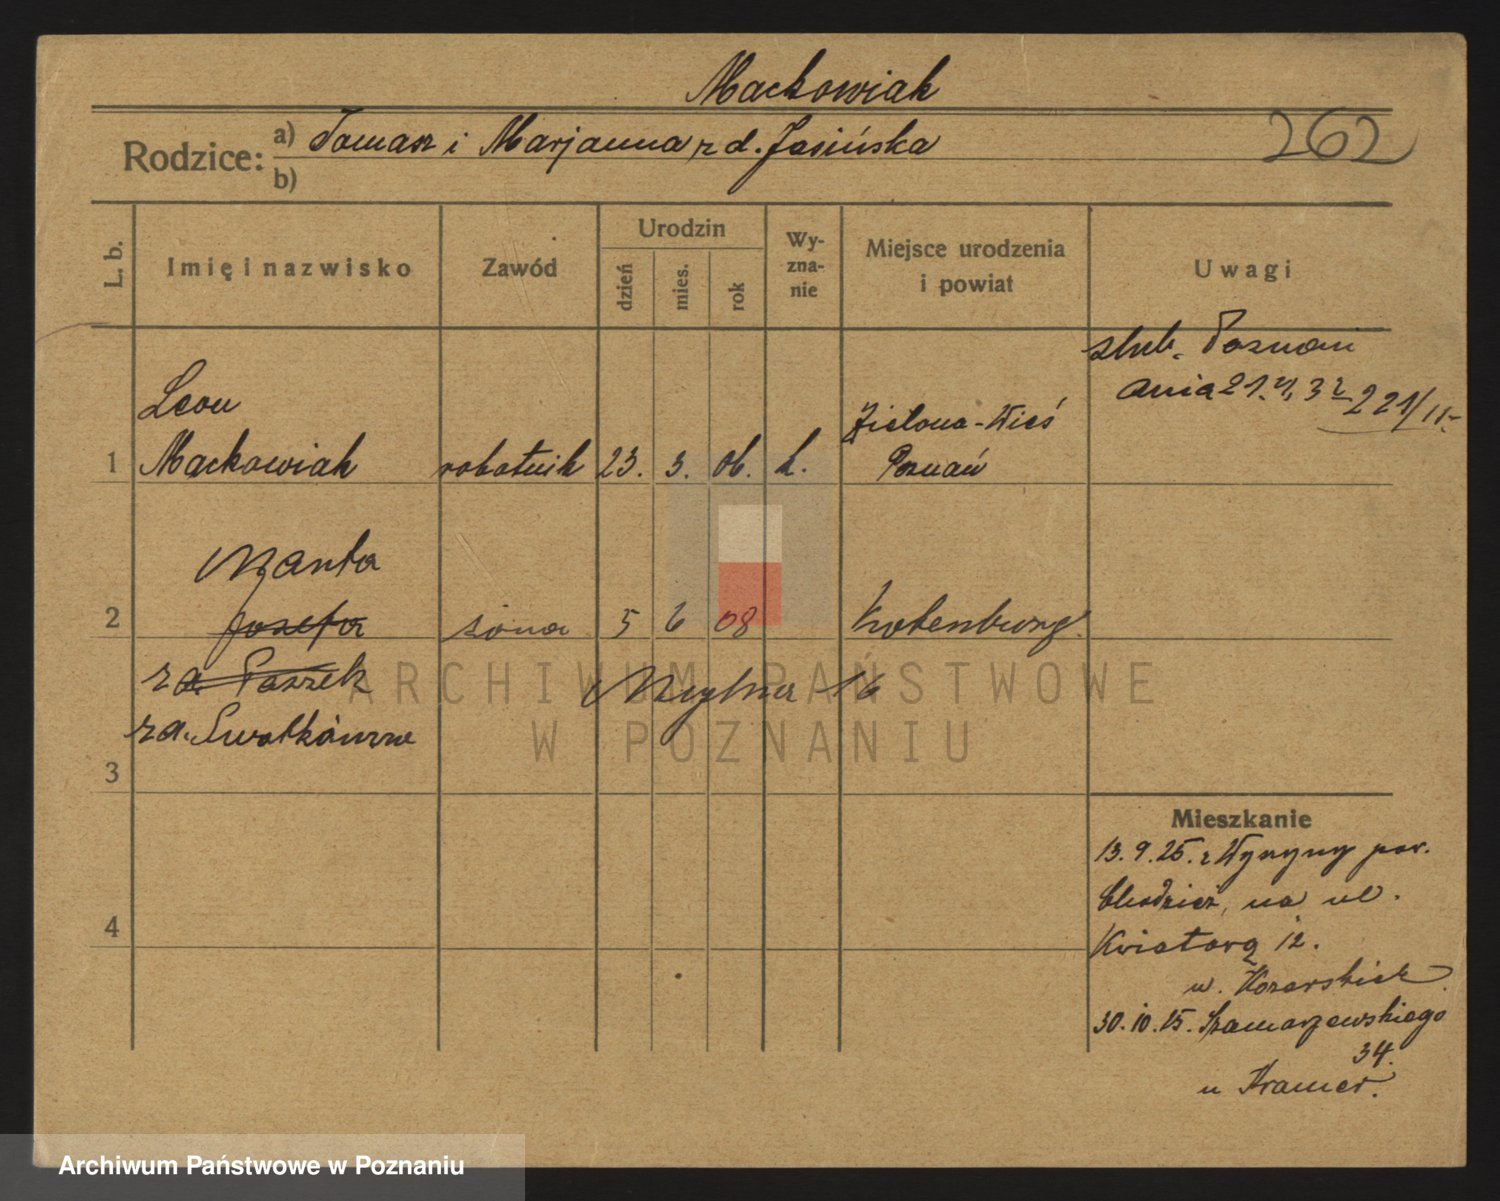 Mackowiak
Rodzice: a) Tomasz i Marjanna z d. Jasińska
b)
262
L. b.
Imię i nazwisko
Zawód
Urodzin
dzień
mies.
rok
Wy-
zna-
nie
Miejsce urodzenia
i powiat
Uwagi
ślub. Poznań
dnia 21. VI, 32 221/II
Leon
1 Mackowiak robotnik 23. 3. 06. k. Zielona-Wieś
Poznań
Wanta
2 Józefa żona 5 6 08 Rotenburg.
z d. Paszek
16
z d.
3
4
Mieszkanie
13. 9. 25. z Wyszyny pow.
Chodzież, na ul.
Kwiatową 12.
u. Kozarskich
30. 10. 25. Szamarzewskiego
34.
u Kramer.
ARCHIWUM PAŃSTWOWE
W POZNANIU
Archiwum Państwowe w Poznaniu